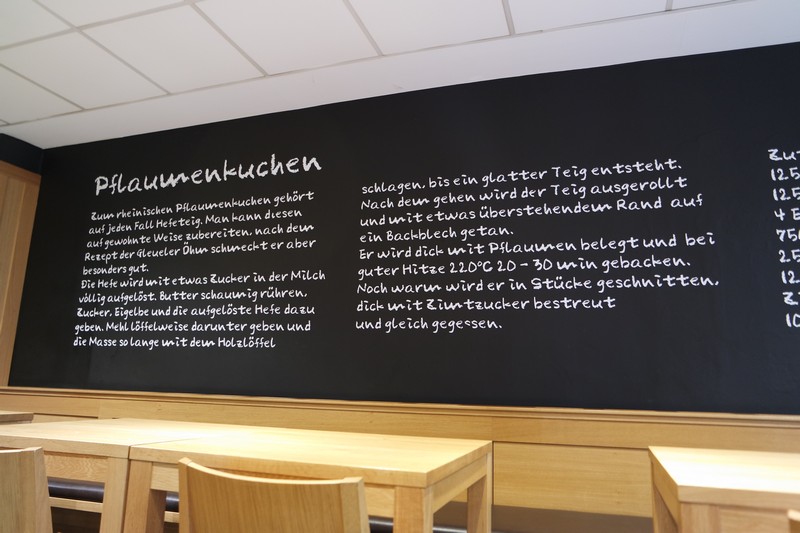 Pflaumenkuchen
Zum rheinischen Pflaumenkuchen gehört
auf jeden Fall Hefeteig. Man kann diesen
auf gewohnte Weise zubereiten, nach dem
Rezept der Gleueler Öhm schmeckt er aber
besonders gut.
Die Hefe wird mit etwas Zucker in der Milch
völlig aufgelöst. Butter schaumig rühren,
Zucker, Eigelbe und die aufgelöste Hefe dazu
geben. Mehl löffelweise darunter geben und
die Masse so lange mit dem Holzlöffel
schlagen, bis ein glatter Teig entsteht.
Nach dem gehen wird der Teig ausgerollt
und mit etwas überstehendem Rand auf
ein Backblech getan.
Er wird dick mit Pflaumen belegt und bei
guter Hitze 220°C 20 - 30 min gebacken.
Noch warm wird er in Stücke geschnitten,
dick mit Zimtzucker bestreut
und gleich gegessen.
Zu
12
12
4
75
2
12
Z
10